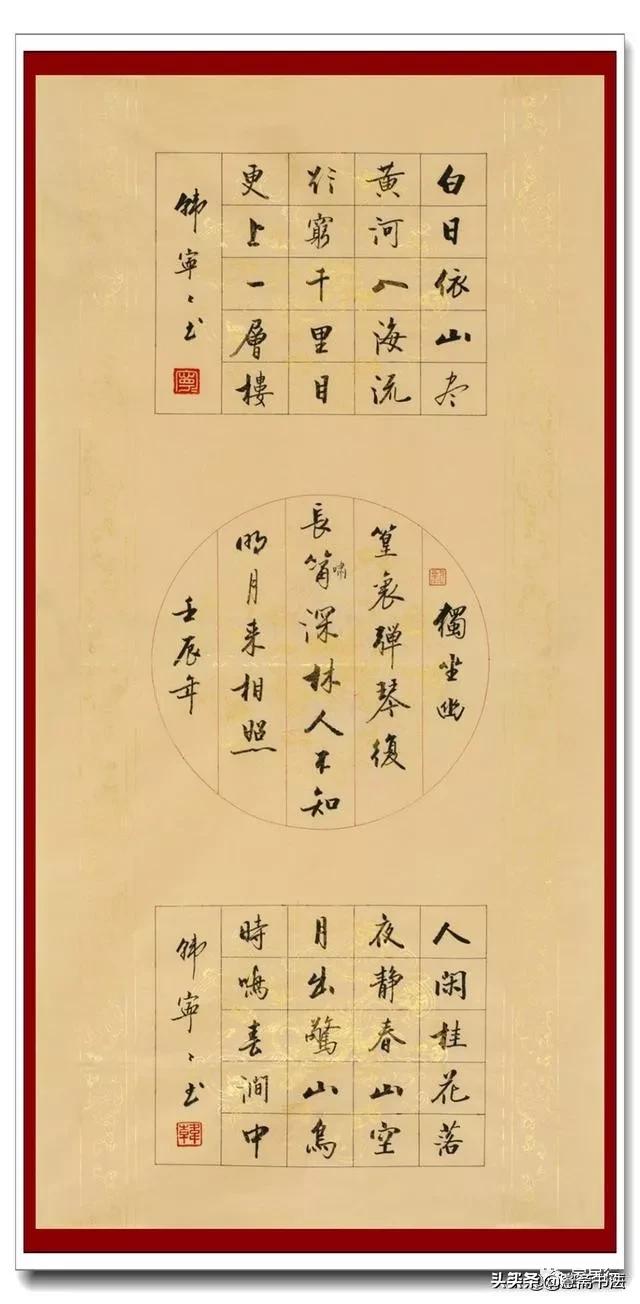 白日依山尽
黄河入海流
欲窮千里目
更上一層樓
韩寧〻书
獨坐幽
篁裏弹琴復
長嘯深林人不知
明月来相照
壬辰年
人闲桂花落
夜静春山空
月出驚山鳥
時鳴春澗中
韩寧〻书
韓